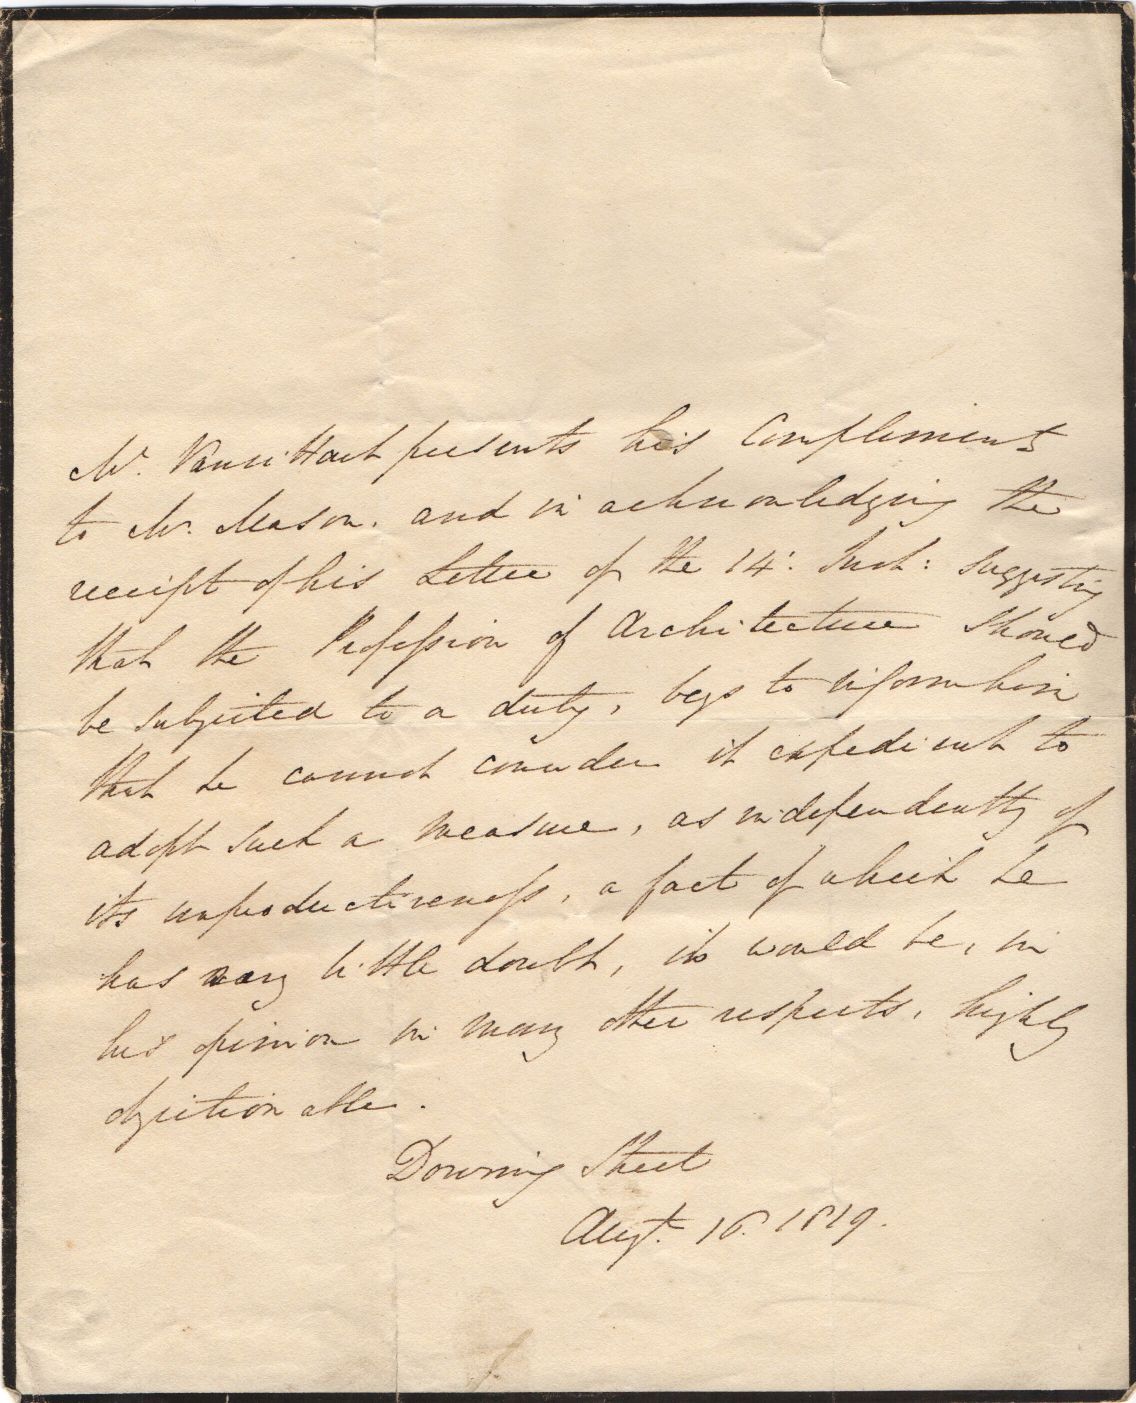 Mr. Vansittart presents his Compliments
to Mr. Mason, and in acknowledging the
receipt of his Letter of the 14: Inst: suggesting
that the Profession of Architecture should
be subjected to a duty, begs to inform him
that he cannot consider it expedient to
adopt such a measure, as independently of
its unproductiveness, a fact of which he
has very little doubt, it would be, in
his opinion in many other respects, highly
objectionable.
Downing Street
Augt. 16. 1819.